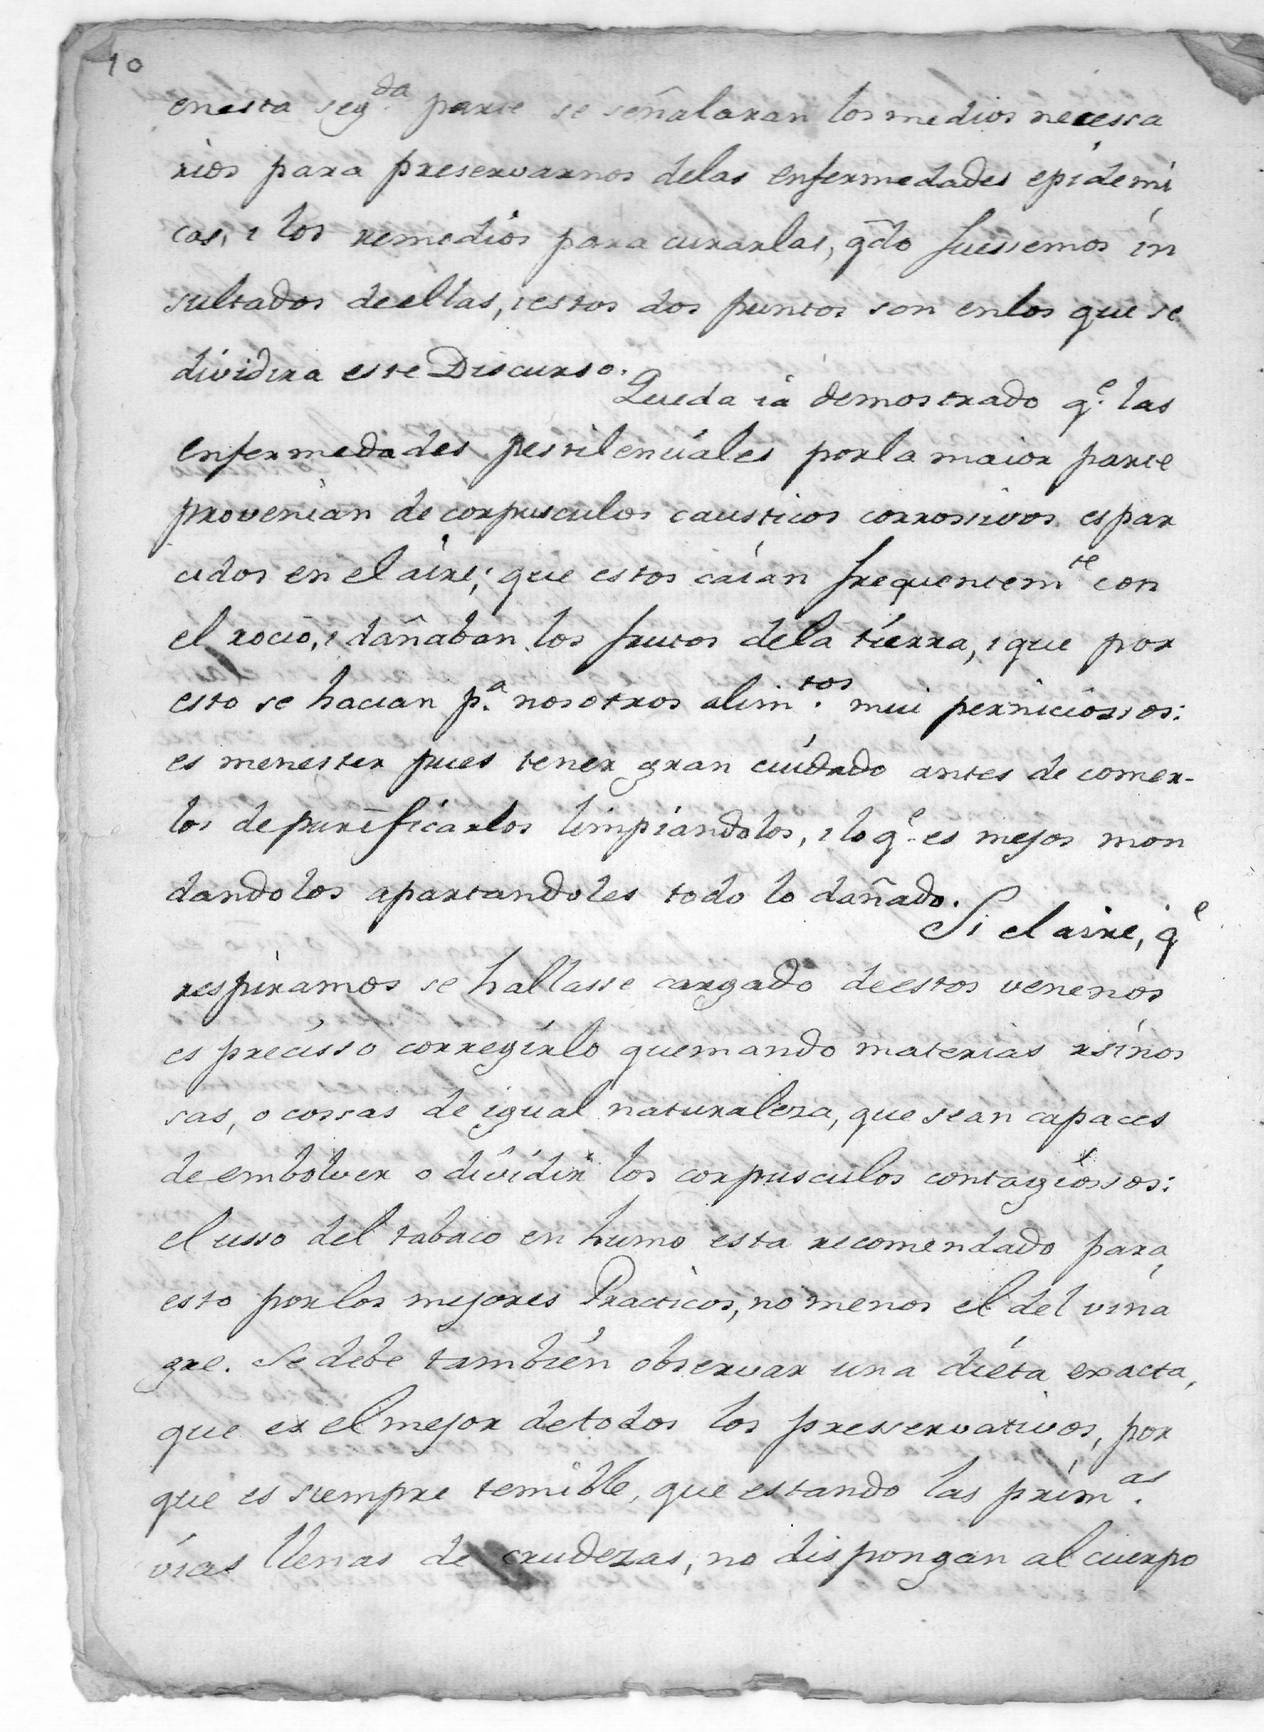 10
enesta seg.da parte se señalaran los medios necessa
rios para preservarnos delas enfermedades epidemi
cas, i los remedios para curarlas, qdo fuessemos in
sultados deellas, i estos dos puntos son enlos que se
dividira este Discurso.
Queda ia demostrado q.e las
enfermedades pestilenciales porla maior parte
provenian de corpusculos causticos corrossivos espar
cidos en el aire; que estos caían frequentem.te con
el rocio, i dañaban los frutos dela tierra, i que por
esto se hacian p.a nosotros alim.tos mui perniciossos:
es menester pues tener gran cuidado antes de comer-
los de purificarlos limpiandolos, i lo q.e es mejor mon
dandolos apartandoles todo lo dañado.
Si el aire, q.e
respiramos se hallasse cargado deestos venenos
es precisso corregirlo quemando materias rsinos
sas, o cossas de igual naturaleza, que sean capaces
de embolver o dividir los corpusculos contagiossos:
el usso del tabaco en humo esta recomendado para
esto porlos mejores Practicos, no menos el del vina
gre. Se debe tambien observar una dieta exacta,
que es el mejor detodos los preservativos, por
que es siempre temible, que estando las prim.as
vias llenas de crudezas, no dispongan al cuerpo